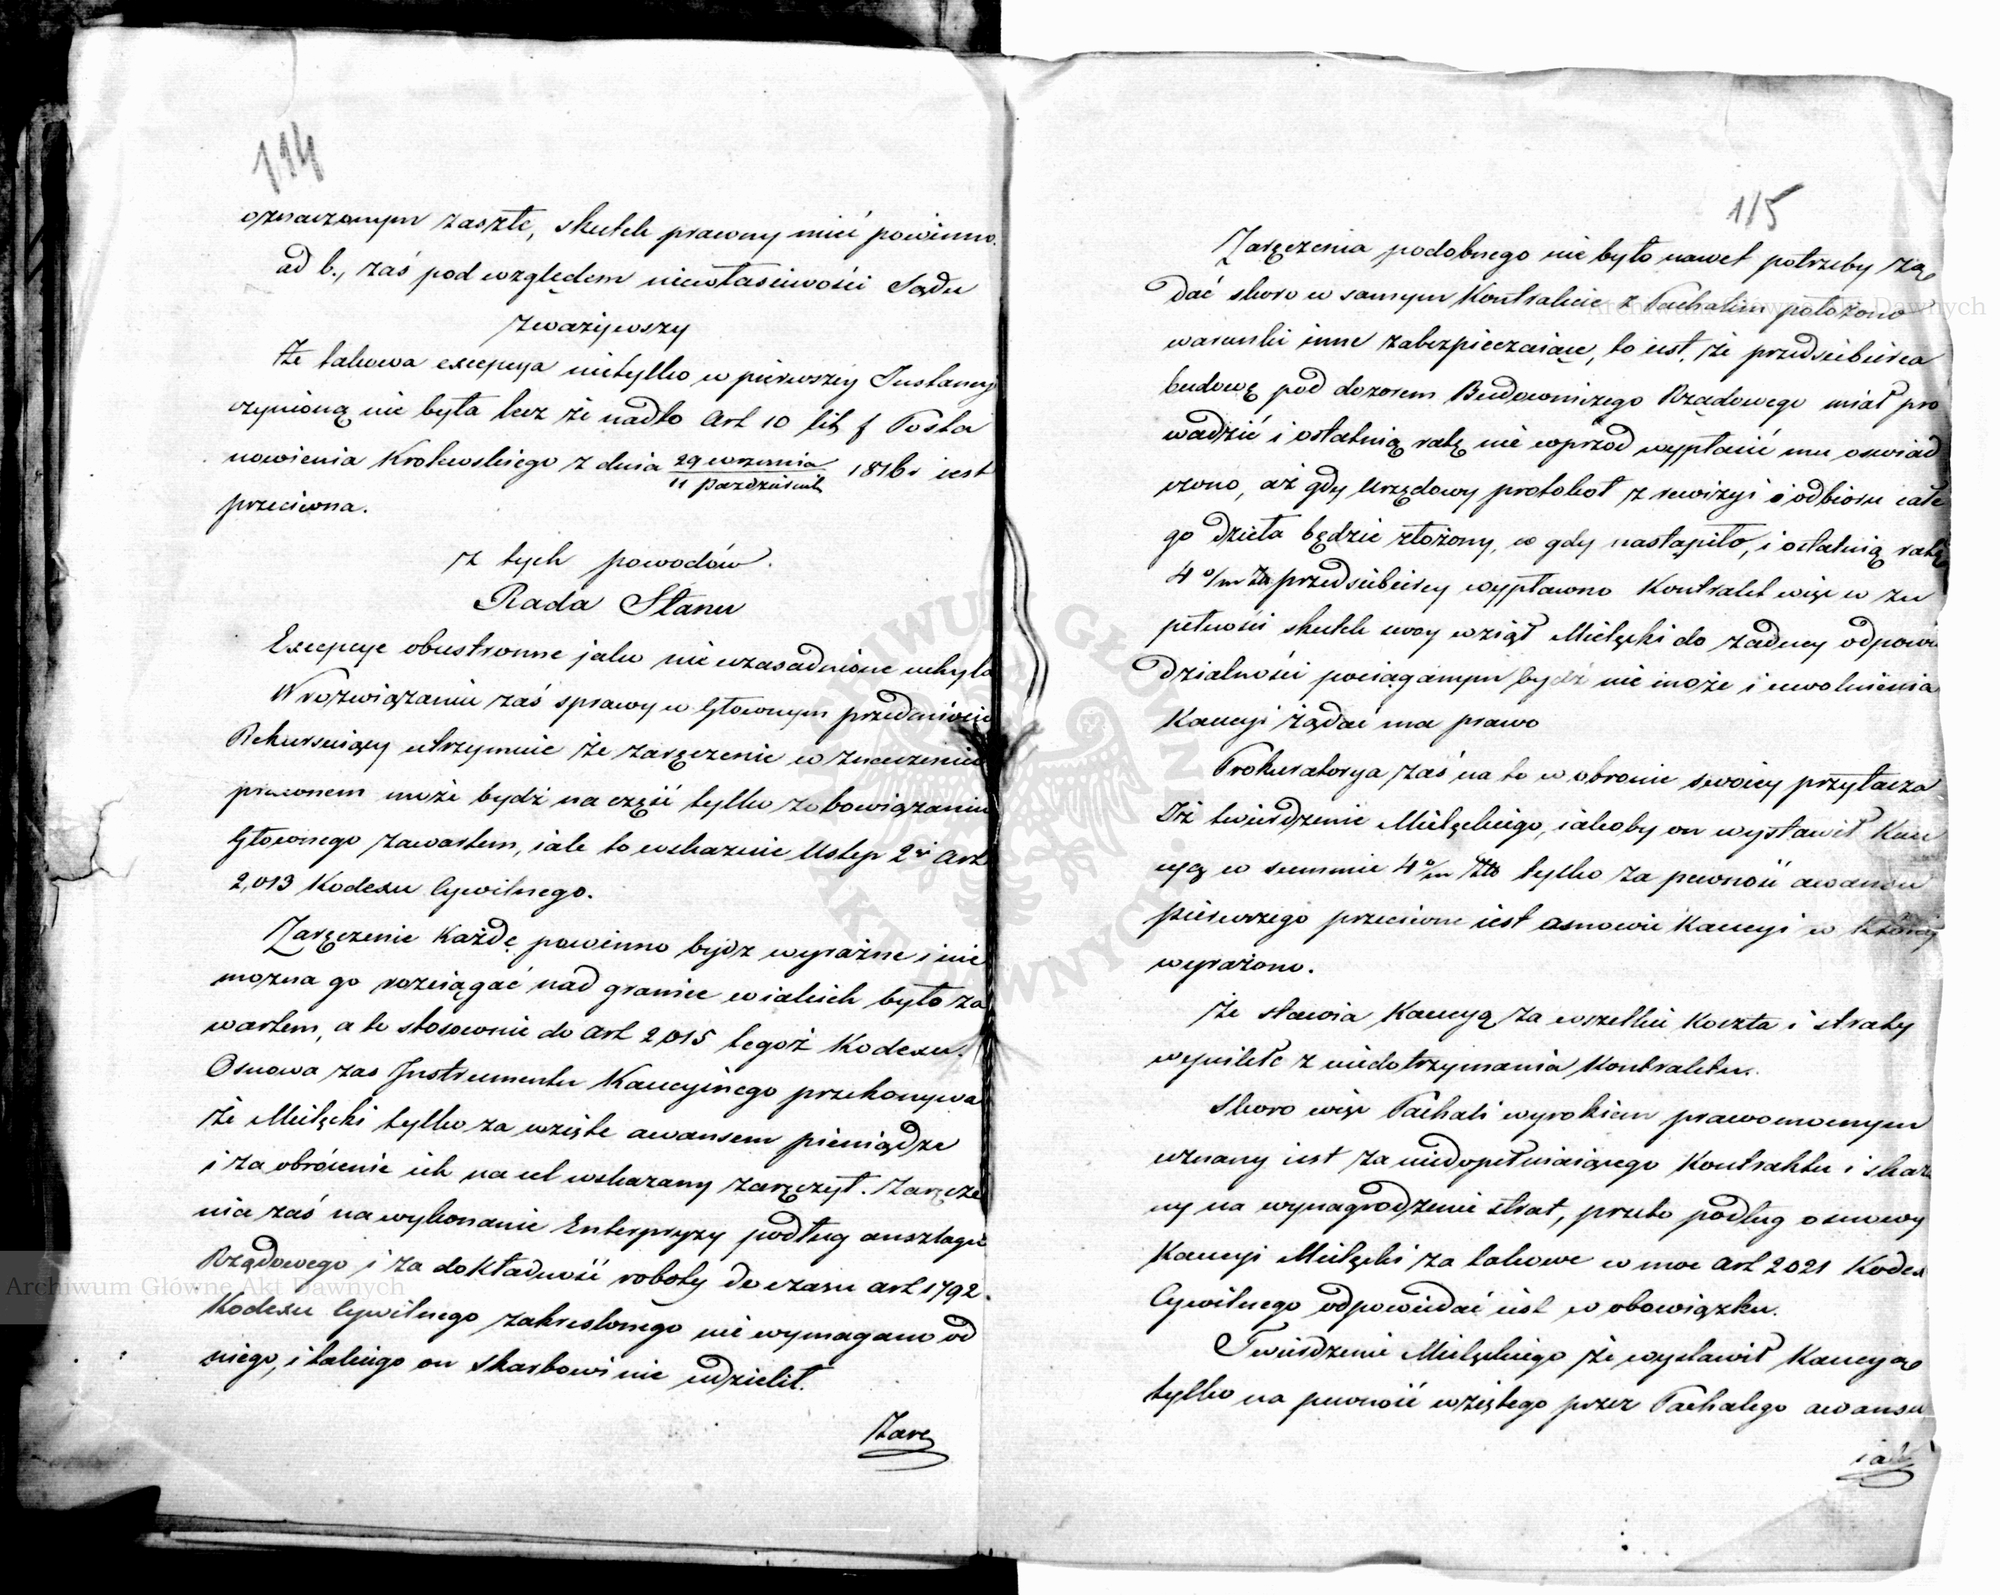 114
oznaczonym zaszłe, skutek prawny mieć powinno.
ad b., zaś pod względem niewłaściwości Sądu
zważywszy
że takowa excepcya nietylko w pierwszey Instancyi
czynioną nie była lecz że nadto Art 10 lit f Posta
nowienia Krolewskiego z dnia 29 września / 11 października 1816 r iest
przeciwna.
z tych powodów.
Rada Stanu
Excepcye obustronne jako nie uzasadnione uchyla
W rozwiązaniu zaś sprawy w głownym przedmiocie
Rekursuiący utrzymuie że zaręczenie w znaczeniu
prawnem może bydź na część tylko zobowiązania
głównego zawartem, iak to wskazuie Ustęp 2gi Art
2,013 Kodexu Cywilnego.
Zaręczenie każdę powinno bydz wyraźne i nie
mozna go rozciągać nad granice w iakich było za
wartem, a to stosownie do Art 2,015 tegoż Kodexu.
Osnowa zas Instrumentu Kaucyinego przekonywa
że Mielęcki tylko za wzięte awansem pieniądze
i za obrócenie ich na cel wskazany zaręczył. Zaręcze
nia zaś na wykonanie Enterpryzy podług anszlagu
Rządowego i za dokładność roboty do czasu art 1792.
Kodexu Cywilnego zakreslonego nie wymagano od
niego, i takiego on Skarbowi nie udzielił.
Zarę
115
Zaręczenia podobnego nie było nawet potrzeby żą
dać skoro w samym Kontrakcie z Pachalim położono
warunki inne zabezpieczaiące, to iest, że przedsiebierca
budowę pod dozorem Budowniczego Rządowego miał pro
wadzić i ostatnią ratę nie wprzód wypłacić mu oświad
czono, aż gdy Urzędowy protokoł z rewizyi i odbioru całe
go dzieła będzie złożony, co gdy nastąpiło, i ostatnią ratę
4 o/m Zł przedsiebiercy wypłacono Kontrakt więc w zu
pełności skutek swoy wziął Mielęcki do żadney odpowie
dzialności pociąganym bydź nie może i uwolnienia
Kaucyi żądać ma prawo
Prokuratorya zaś na to w obronie swoiey przytacza
Iż twierdzenie Mielęckiego, iakoby on wystawił Kau
cyą w summie 4 o/m Zło tylko za pewność awansu
pierwszego przeciwne iest osnowie Kaucyi w którey
wyrażono.
Że stawia Kaucyą za wszelkie koszta i straty
wynikłe z niedotrzymania Kontraktu.
Skoro więc Pachali wyrokiem prawomocnym
uznany iest za niedopełniaiącego Kontraktu i skaza
ny na wynagrodzenie strat, przeto podług osnowy
Kaucyi Mielęcki za takowe w moc Art 2021 Kodex
Cywilnego odpowiedać iest w obowiązku.
Twierdzenie Mielęckiego że wystawił Kaucyą
tylko na pewność wziętego przez Pachalego awansu
iak
Archiwum Główne Akt Dawnych
Archiwum Główne Akt Dawnych
ARCHIWUM GŁÓWNE AKT DAWNYCH